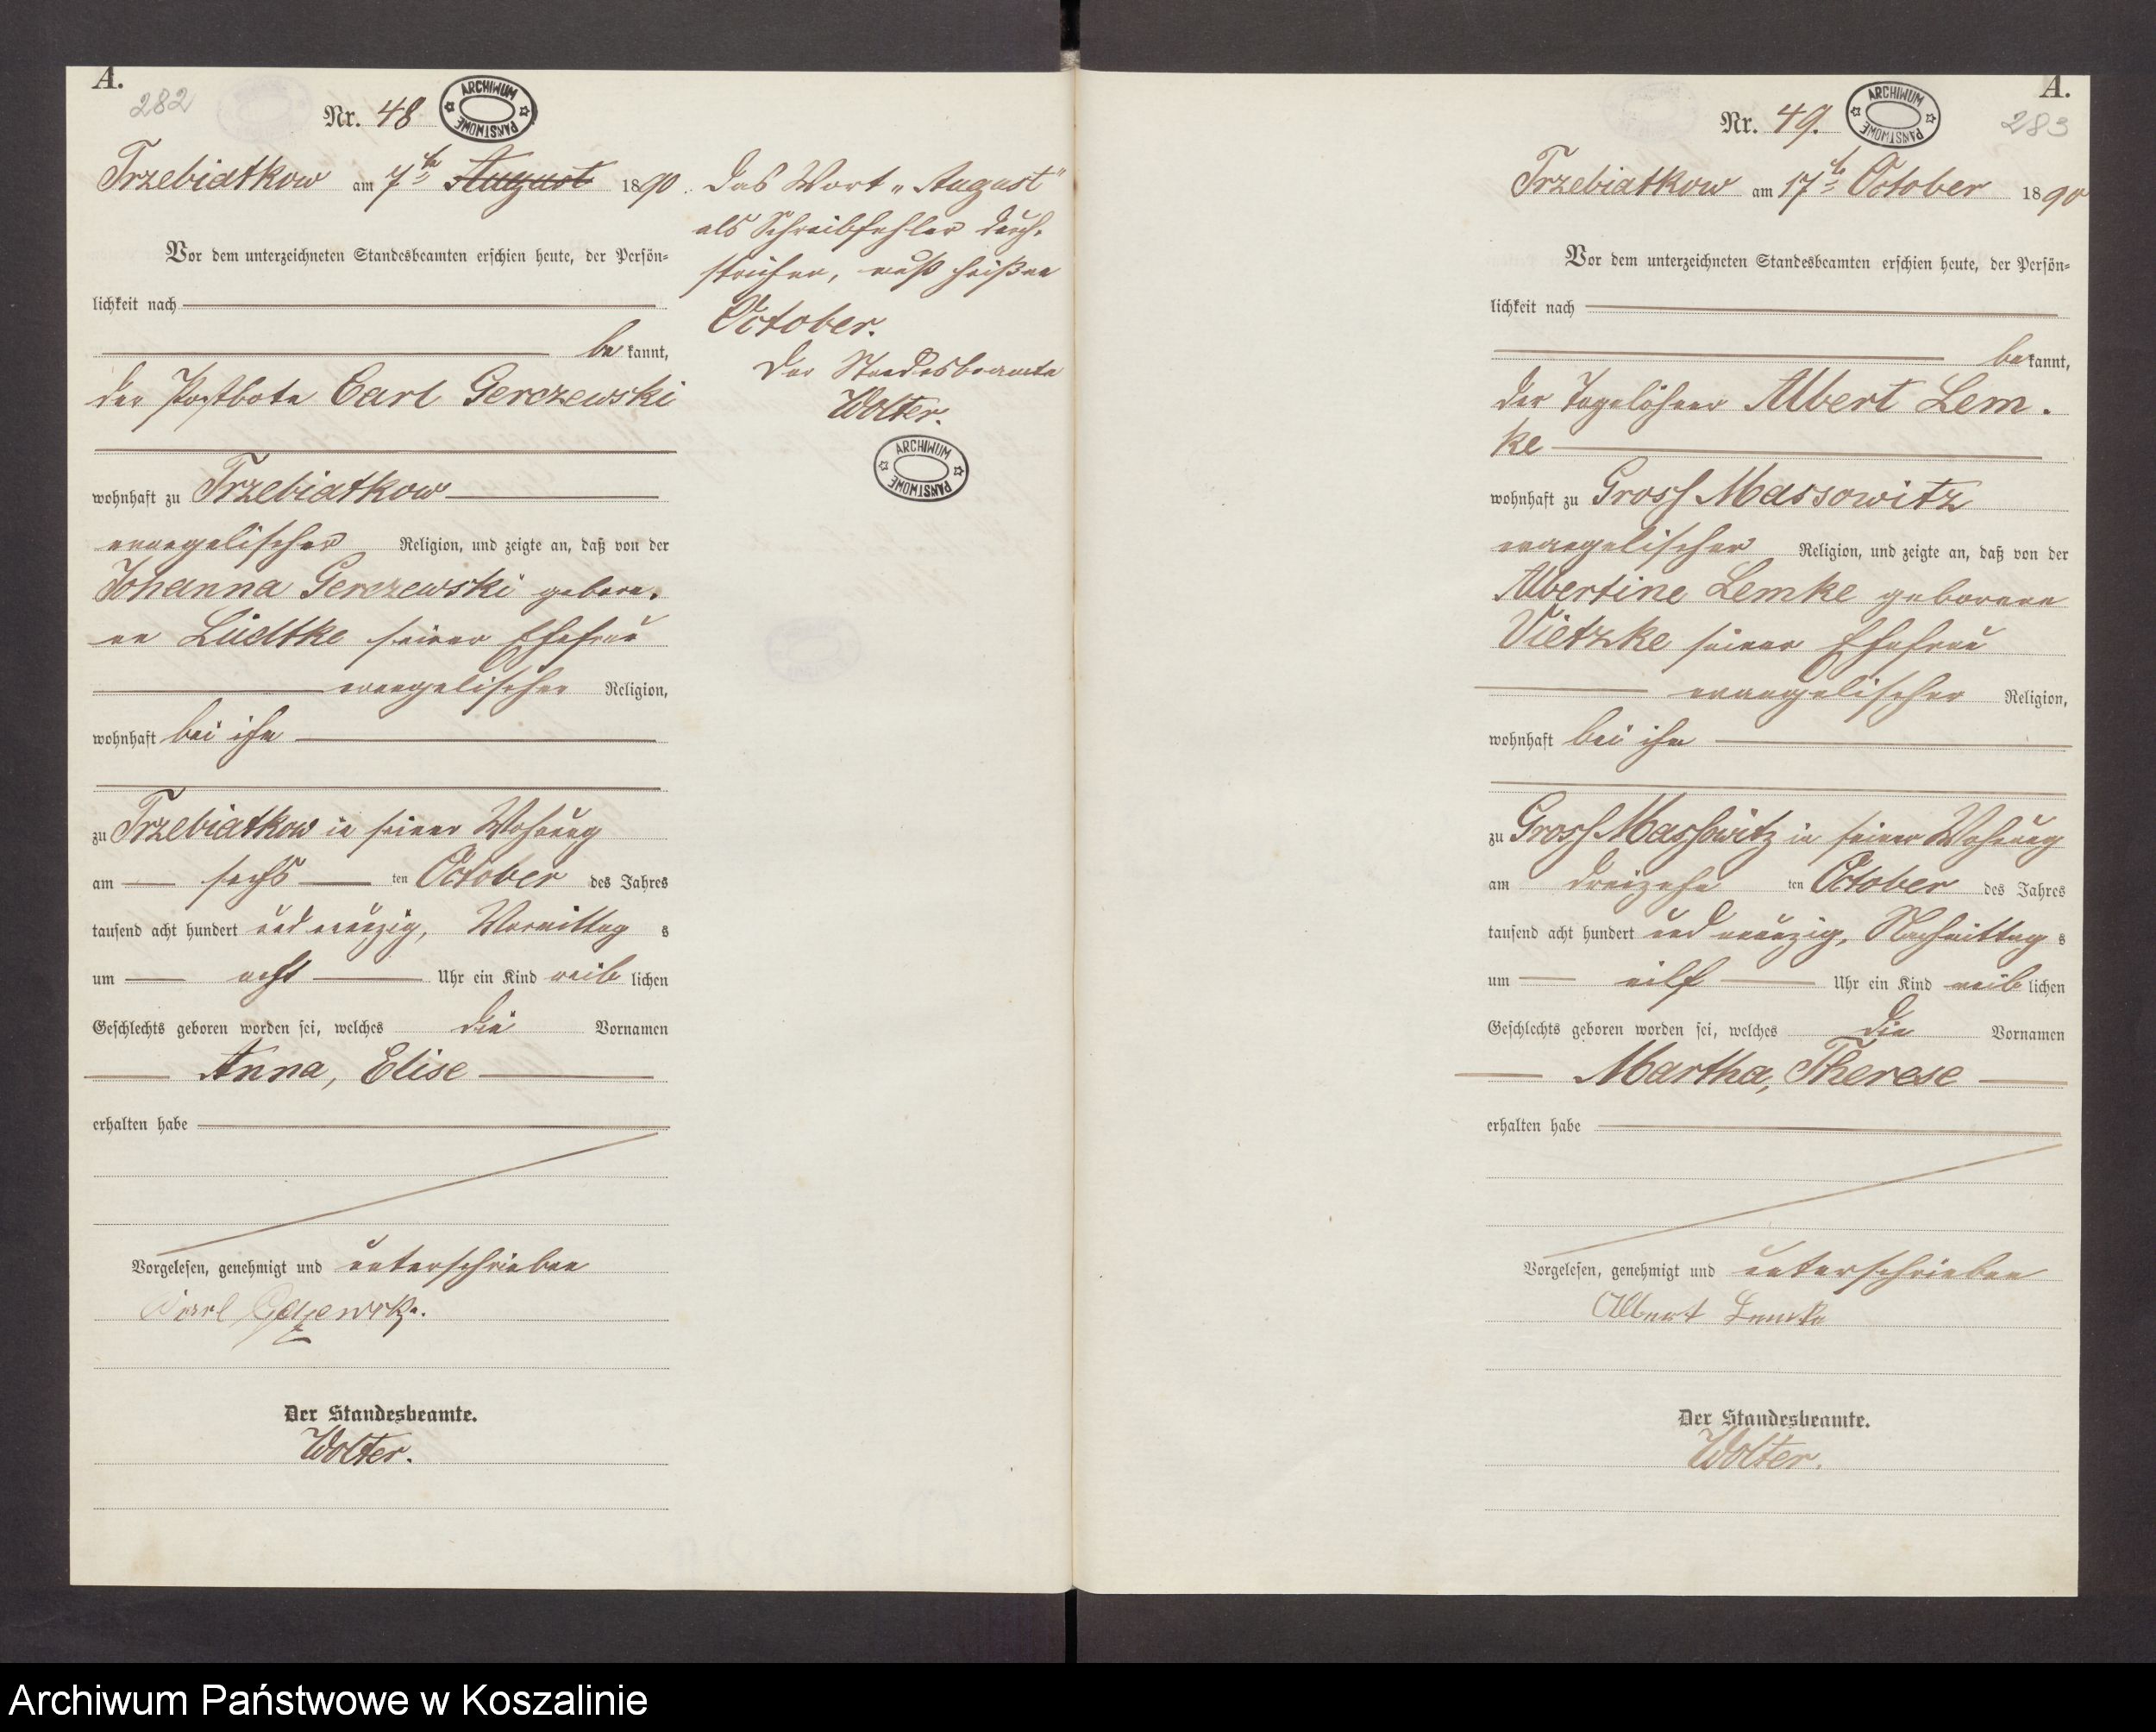 A.
282
Nr. 48
ARCHIWUM PAŃSTWOWE
Trzebiatkow am 7ten August 1890.
Vor dem unterzeichneten Standesbeamten erschien heute, der Persön-
lichkeit nach
bekannt,
der Postbote Carl Gerczewski
wohnhaft zu Trzebiatkow
evangelischer Religion, und zeigte an, daß von der
Johanna Gerczewski gebore-
nen Lüdtke seiner Ehefrau
evangelischer Religion,
wohnhaft bei ihm
zu Trzebiatkow in seiner Wohnung
am sechsten October des Jahres
tausend acht hundert und neunzig, Vormittags
um acht Uhr ein Kind weiblichen
Geschlechts geboren worden sei, welches die Vornamen
Anna, Elise
erhalten habe
Vorgelesen, genehmigt und unterschrieben
Carl
Der Standesbeamte.
Wolter.
Das Wort „August"
als Schreibfehler durch-
strichen, muß heißen
October.
Der Standesbeamte
Wolter.
ARCHIWUM PAŃSTWOWE
A.
283
Nr. 49.
ARCHIWUM PAŃSTWOWE
Trzebiatkow am 17ten October 1890
Vor dem unterzeichneten Standesbeamten erschien heute, der Persön-
lichkeit nach
bekannt,
der Tagelöhner Albert Lem-
ke
wohnhaft zu Gross Massowitz
evangelischer Religion, und zeigte an, daß von der
Albertine Lemke geborenen
Vietzke seiner Ehefrau
evangelischer Religion,
wohnhaft bei ihm
zu Gross Massowitz in seiner Wohnung
am dreizehnten October des Jahres
tausend acht hundert und neunzig, Nachmittags
um eilf Uhr ein Kind weiblichen
Geschlechts geboren worden sei, welches die Vornamen
Martha, Therese
erhalten habe
Vorgelesen, genehmigt und unterschrieben
Albert Lemke
Der Standesbeamte.
Wolter.
Archiwum Państwowe w Koszalinie